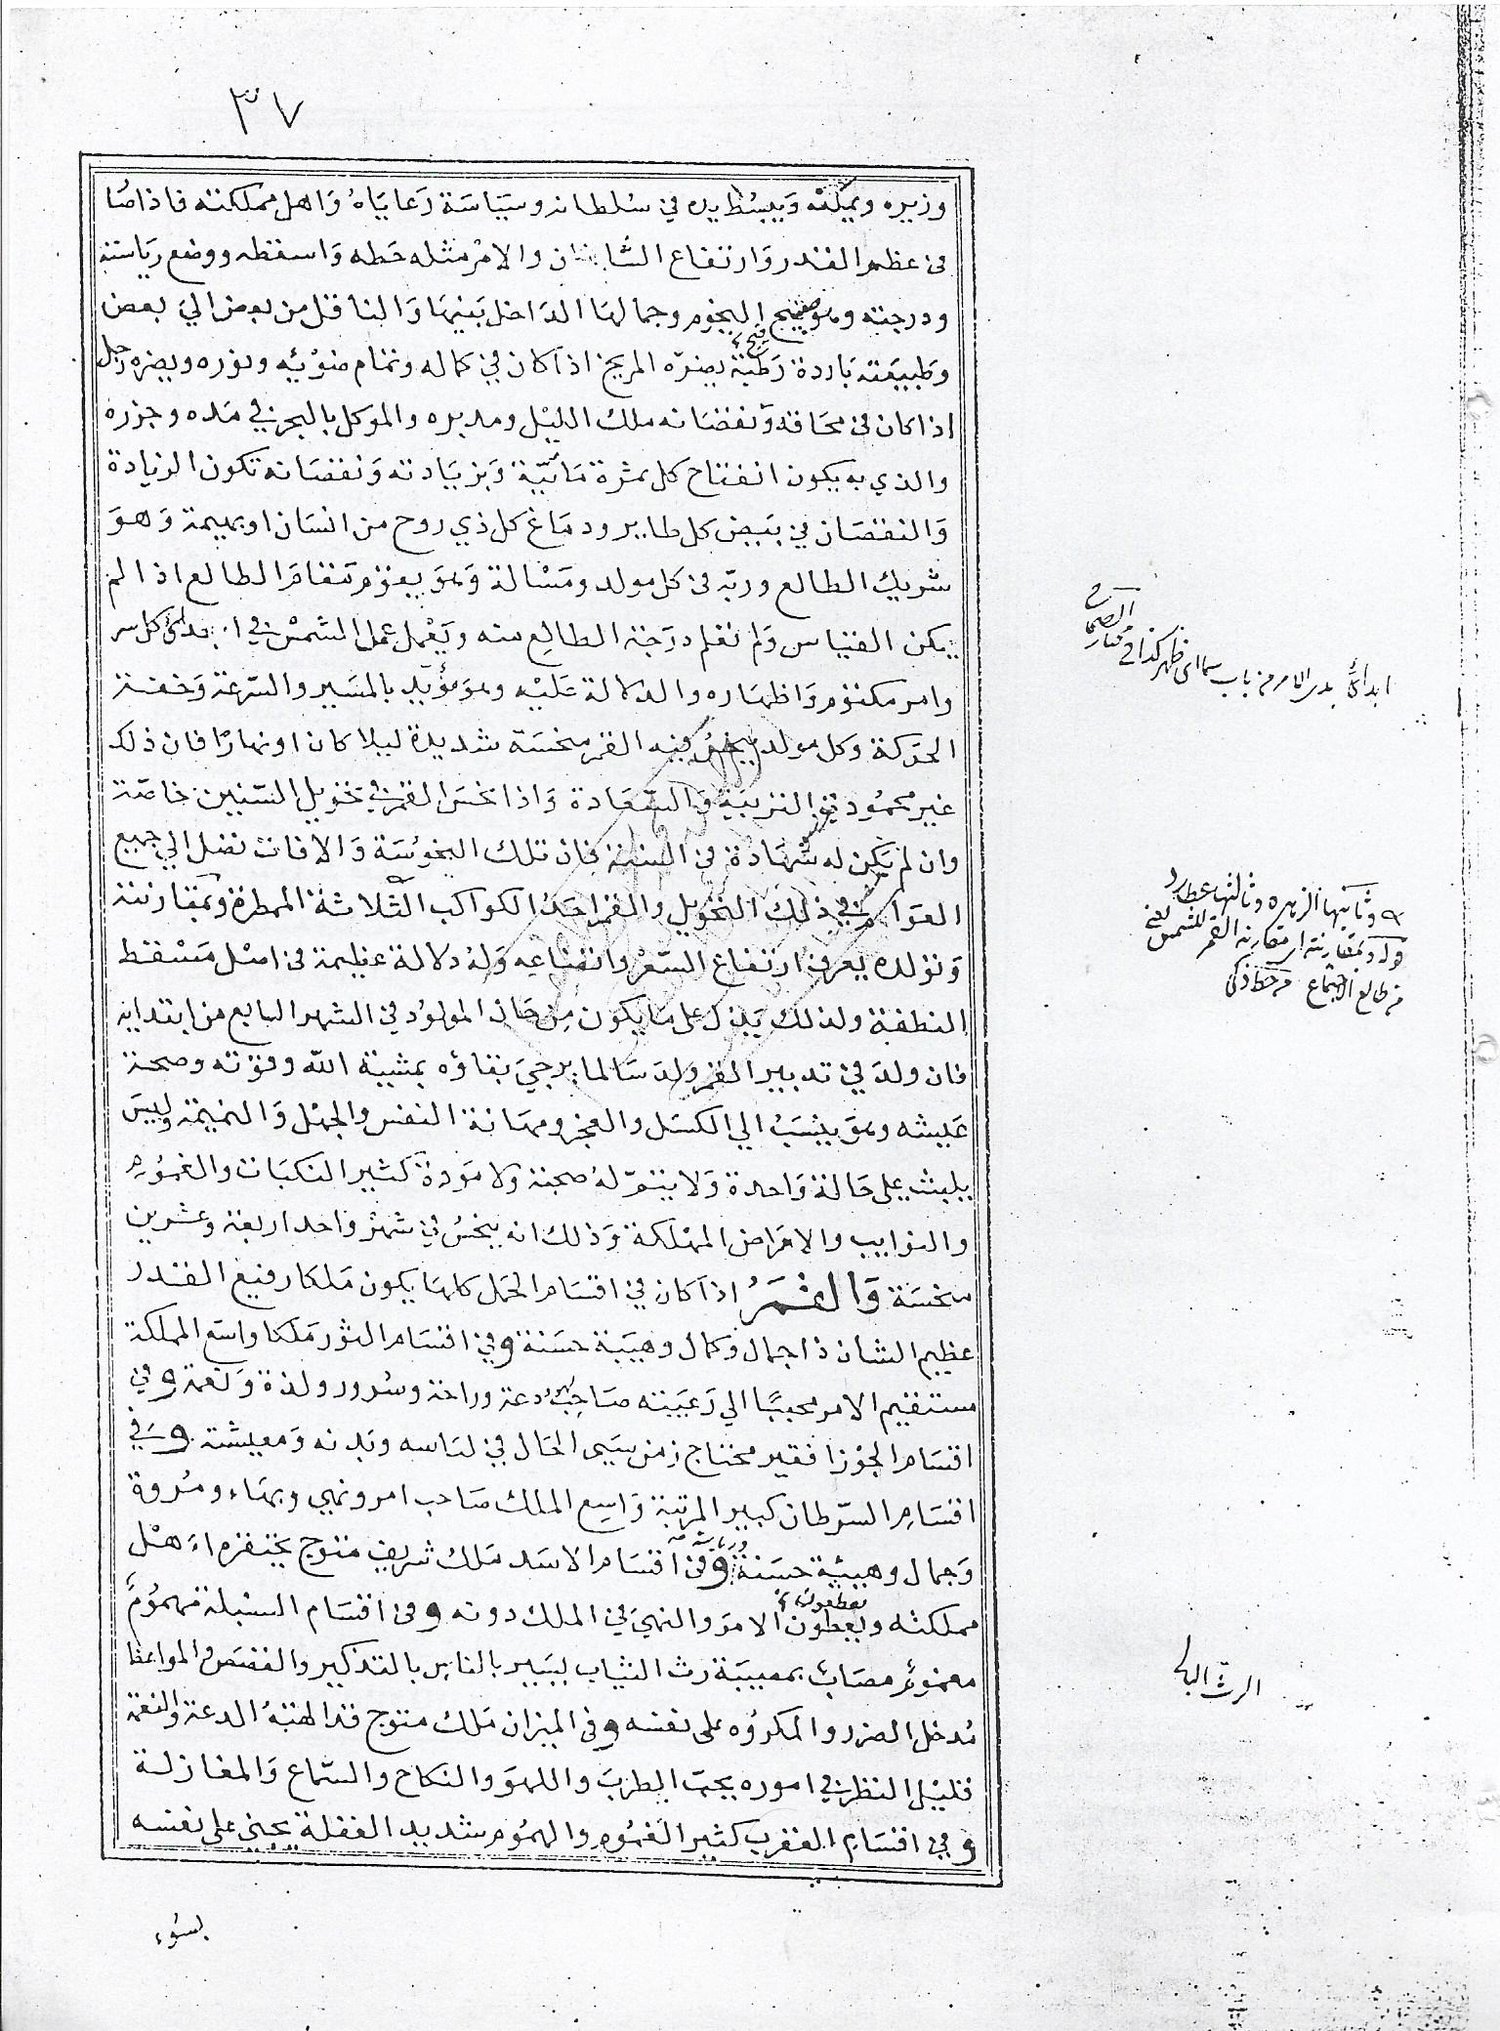 ٣٧
وزيره ويمكنه ويبسط يده في سلطانه وسياسة رعاياه واهل مملكته فاذا صا
في عظم القدر وارتفاع الشان والامر مثله حطه واسقطه ووضع رياسته
ودرجته وهو النجوم وجمالها الداخل بينها والناقل من بعض الي بعض
وطبيعته باردة رطبة يضره المريخ اذا كان في كماله وتمام ضوئه ونوره ويضره زحل
اذا كان في محاقه ونقصانه ملك الليل ومدبره والموكل بالبحر في مده وجزره
والذي به يكون انفتاح كل ثمرة مائية وبزيادته ونقصانه تكون الزيادة
والنقصان في بيض كل طاير ودماغ كل ذي روح من انسان او بهيمة وهو
شريك الطالع وربه في كل مولد ومسالة وهو يقوم مقام الطالع اذا لم
يكن القياس ولم تعلم درجة الطالع منه ويعمل عمل الشمس في ابداء كل سر
وامر مكتوم واظهاره والدلالة عليه وهو مؤيد بالمسير والسرعة وخفة
الحركة وكل مولد ينحس فيه القمر منحسة شديدة ليلا كان او نهارا فان ذلك
غير محمود في التربية والسعادة واذا نحس القمر في تحويل السنين خاصة
وان لم يكن له شهادة في السنة فان تلك النحوسة والافات تصل الي جميع
العوام في ذلك التحويل والقمر احد الكواكب الثلاثة الممطرة وبمقارنته
وتولده يعرف ارتفاع السعر واتضاعه وله دلالة عظيمة في اصل مسقط
النطفة ولذلك يدل على ما يكون من حال المولود في الشهر السابع من ابتدايه
فان ولد في تدبير القمر ولد سالما يرجي بقاؤه بمشيئة الله وقوته وصحة
عيشه وهو ينسب الي الكسل والعجز ومهانة النفس والجهل والنميمة وليس
يلبث على حالة واحدة ولا يتم له صحبة ولا مودة كثير النكبات والغموم
والنوايب والامراض المهلكة وذلك انه ينحس في شهر واحد اربعة وعشرين
منحسة والقمر اذا كان في اقسام الحمل كلها يكون ملكا رفيع القدر
عظيم الشان ذا جمال وكمال وهيبة حسنة وفي اقسام الثور ملكا واسع المملكة
مستقيم الامر محببا الي رعيته صاحب دعة وراحة وسرور ولذة ونعمة وفي
اقسام الجوزا فقير محتاج زمن سيي الحال في لباسه وبدنه ومعيشته وفي
اقسام السرطان كبير المرتبة واسع الملك صاحب امر ونهي وبهاء ومروة
وجمال وهيئة حسنة وفي اقسام الاسد ملك شريف متوج يحتقر امراء اهل
مملكته ويعطون الامر والنهي في الملك دونه وفي اقسام السنبلة مهموم
مغموم مصاب بمصيبة رث الثياب يسير بالناس بالتذكير والقصص والمواعظ
مدخل الضرر والمكروه على نفسه وفي الميزان ملك متوج قد الهته الدعة والنعمة
قليل النظر في اموره يحب الطرب واللهو والنكاح والسماع والمغازلة
وفي اقسام العقرب كثير الغموم والهموم شديد الغفلة يجني على نفسه
بسوء
ابداء بدى الامر من باب سما اى ظهر كذا في مختار
الصحاح
وثانيها الزهره وثالثها عطارد
قوله وبمقارنته اى مقارنة القمر للشمس يعني
من طالع الاجتماع
الرث البالى